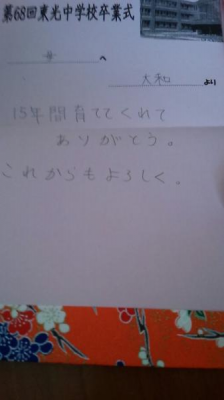 第68回東光中学校卒業式
母へ
大和より
15年間育ててくれて
ありがとう。
これからもよろしく。